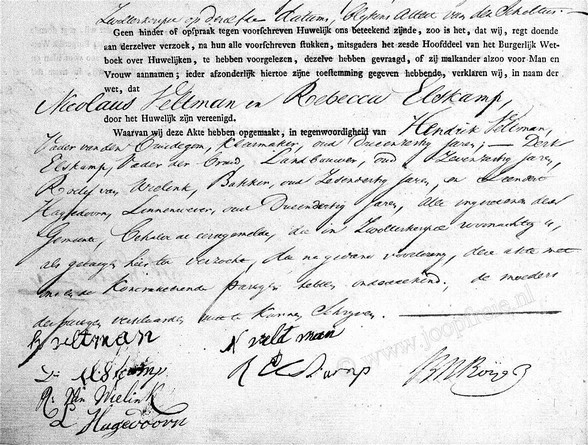 Zwollerkerspe op dezelfde Datums, Blijkens Attest van den Scholtus.
Geen hinder of opspraak tegen voorschreven Huwelijk ons beteekend zijnde, zoo is het, dat wij, regt doende
aan derzelver verzoek, na hun alle voorschreven stukken, mitsgaders het zesde Hoofddeel van het Burgerlijk Wet-
boek over Huwelijken, te hebben voorgelezen, dezelve hebben gevraagd, of zij malkander alzoo voor Man en
Vrouw aannamen; ieder afzonderlijk hiertoe zijne toestemming gegeven hebbende, verklaren wij, in naam der
wet, dat
Nicolaus Veltman en Rebecca Elskamp,
door het Huwelijk zijn vereenigd.
Waarvan wij deze Akte hebben opgemaakt, in tegenwoordigheid van Hendrik Veltman,
Vader van den Bruidegom, oud Jaren; — Derk
Elskamp, Vader der Bruid, Landbouwer, oud Zevenzestig Jaren,
Roelof van Wielink, Bakker, oud Jaren, en Leendert
Hagedoorn, Linnenwever, oud Drieendertig Jaren, Alle ingezetenen dezer
Gemeente, Behalve de eerstgemelde, die in Zwollerkerspe woonachtig is,
als getuigen hier toe verzocht, die na gedane voorlezing, deze akte met
ons en de Kontracteerende Partijen hebben onderteekend, de moeders
der partijen verklaarden niet te kunnen Schrijven.
H veltman N velt man
D: Elskamp R Elskamp
R: van Wielink
L Hagedoorn
© www.joopfreie.nl